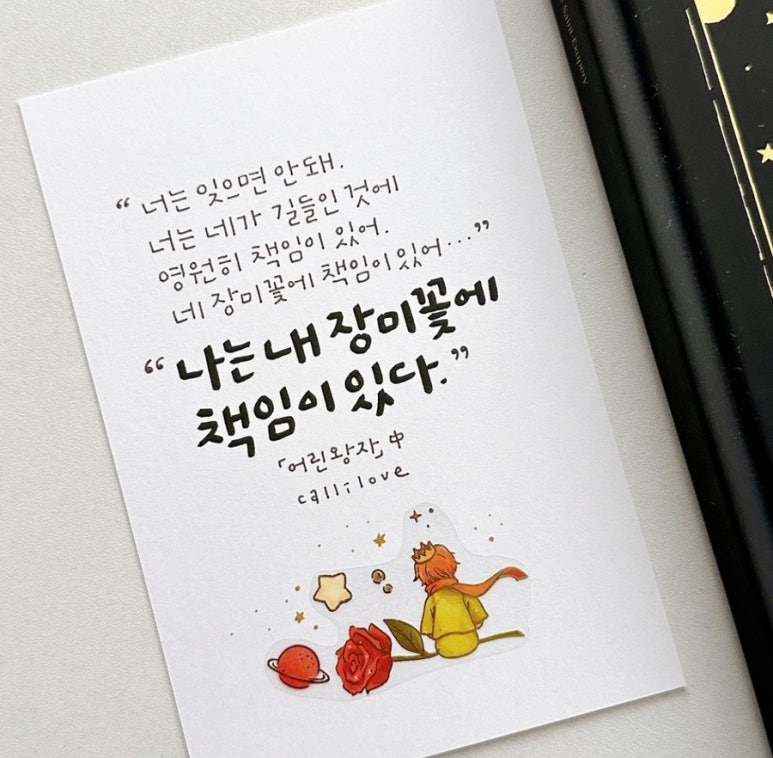 “ 너는 잊으면 안 돼.
너는 네가 길들인 것에
영원히 책임이 있어.
네 장미꽃에 책임이 있어…”
“나는 내 장미꽃에
책임이 있다.”
「어린왕자」 中
callilove
Saint Exupéry